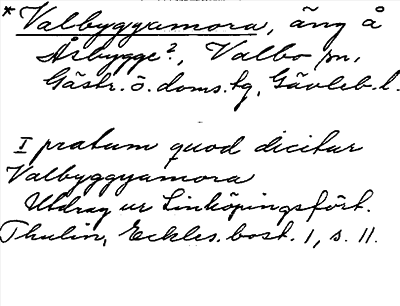 * Valbyggyamora, äng å
Årbygge?, Valbo sn,
Gästr. ö. doms. tg, Gävleb. l.
I pratum quod dicitur
Valbyggyamora
Utdrag ur Linköpingsfört.
Thulin, Eckles. bost. I, s. 11.